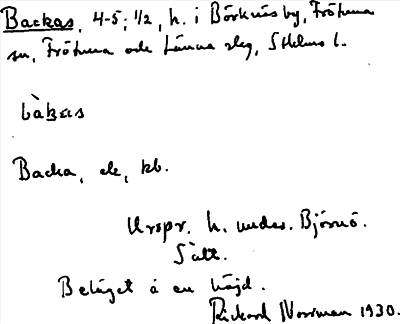 Backas, 4-5; 1/2, h. i Björknäs by, Frötuna
sn, Frötuna och Länna slg, Sthlms l.
bàkas
Backa, ek, kb.
Urspr. h. under Björnö.
Sålt.
Beläget å en höjd.
Rickard Norrman 1930.